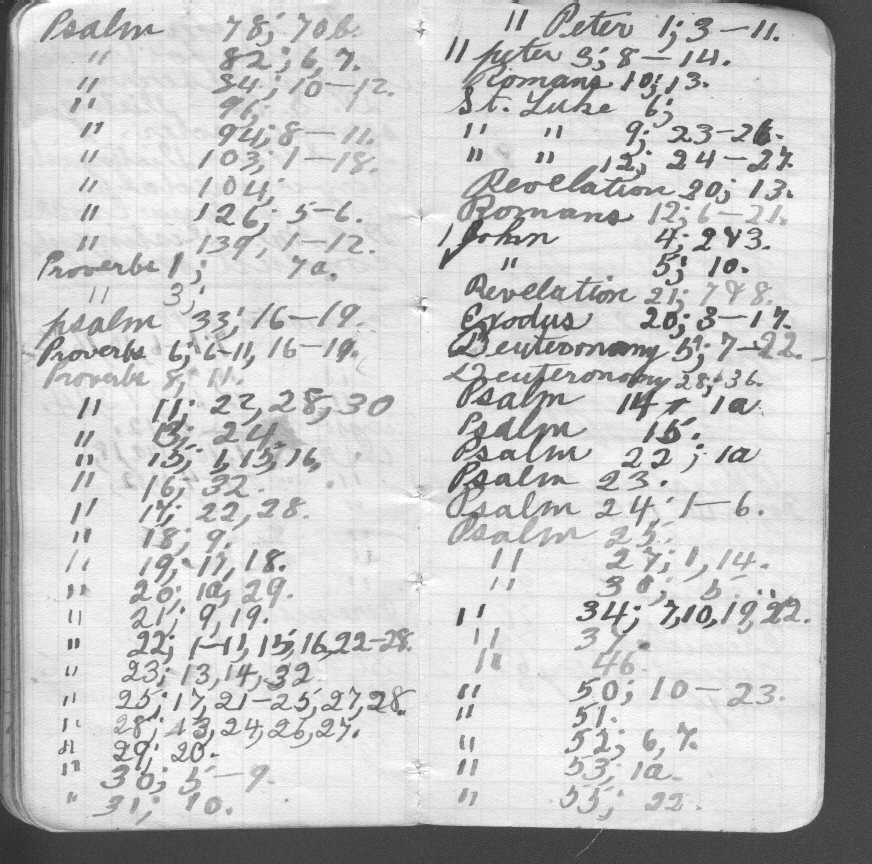 Psalm 78; 70b.
" 82; 6, 7.
" 84; 10—12.
" 96;
" 94; 8—11.
" 103, 1—18.
" 104;
" 126; 5-6.
" 139, 1—12.
Proverbs 1; 7a.
" 3;
psalm 33; 16—19.
Proverbs 6; 6-11, 16-19.
Proverbs 8; 11.
" 11; 22, 28, 30
" 13; 24
" 15; 1, 15, 16,
" 16; 32.
" 17; 22, 28.
" 18; 9.
" 19; 17, 18.
" 20; 1a, 29.
" 21; 9, 19.
" 22; 1—11, 15, 16, 22-28.
" 23; 13, 14, 32
" 25; 17, 21-25, 27, 28.
" 28; 13, 24, 26, 27.
" 29; 20.
" 30; 5—9.
" 31; 10.
" Peter 1; 3—11.
" peter 3; 8—14.
Romans 10; 13.
St. Luke 6;
" " 9; 23-26.
" " 12; 24—27.
Revelation 20; 13.
Romans 12; 6—21.
1 John 4; 2 & 3.
" 5; 10.
Revelation 21; 7 & 8.
Exodus 20; 3—17.
Deuteronomy 5; 7—22.
Deuteronomy 28; 36.
Psalm 14 1a
Psalm 15.
Psalm 22; 1a
Psalm 23.
Psalm 24; 1—6.
Psalm 25.
" 27; 1, 14.
" 30; 5.
" 34; 7, 10, 19, 22.
" 37.
" 46.
" 50; 10—23.
" 51.
" 52; 6, 7.
" 53; 1a.
" 55; 22.